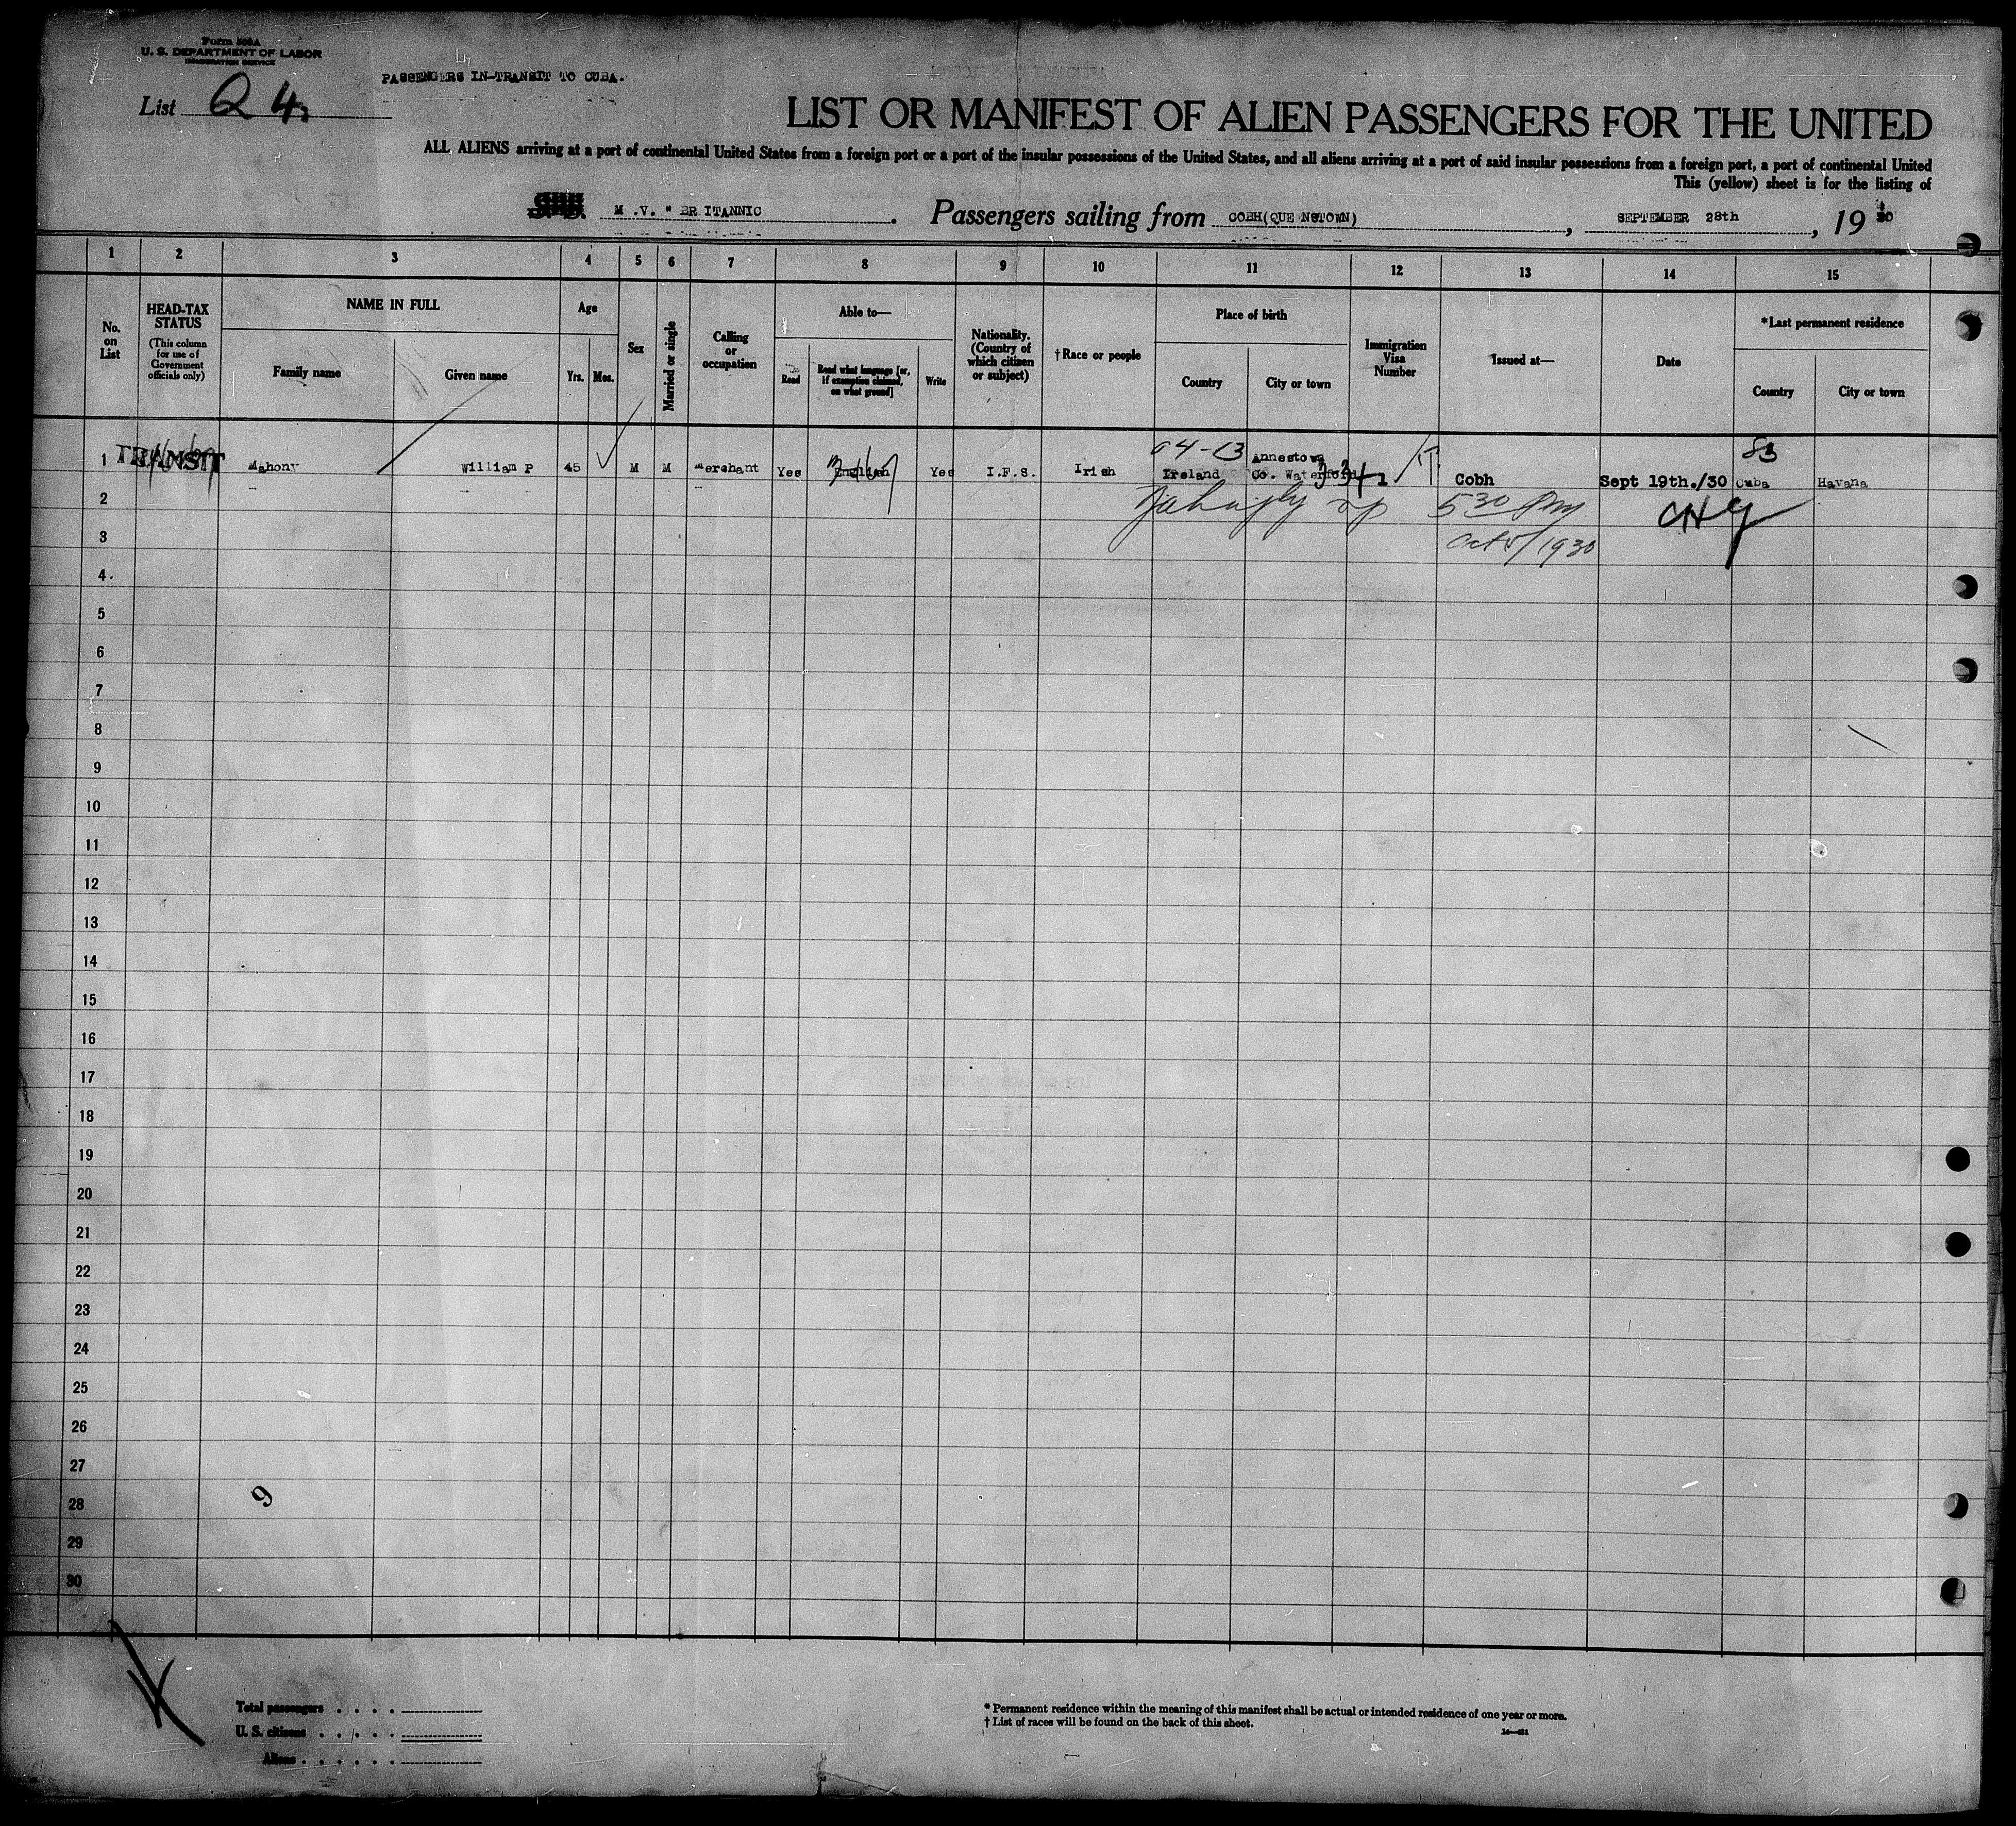 Form 500A
U. S. DEPARTMENT OF LABOR
IMMIGRATION SERVICE
PASSENGERS IN-TRANSIT TO CUBA.
List Q 4
LIST OR MANIFEST OF ALIEN PASSENGERS FOR THE UNITED
ALL ALIENS arriving at a port of continental United States from a foreign port or a port of the insular possessions of the United States, and all aliens arriving at a port of said insular possessions from a foreign port, a port of continental United
This (yellow) sheet is for the listing of
M .V. " BRITANNIC . Passengers sailing from COBH(QUE NSTOWN) , SEPTEMBER 28th , 19 30
1 2 3 4 5 6 7 8 9 10 11 12 13 14 15
No. on List
HEAD-TAX STATUS
(This column for use of Government officials only)
NAME IN FULL
Family name
Given name
Age
Yrs.
Mos.
Sex
Married or single
Calling or occupation
Able to—
Read
Read what language [or, if exemption claimed, on what ground]
Write
Nationality. (Country of which citizen or subject)
† Race or people
Place of birth
Country
City or town
Immigration Visa Number
Issued at—
Date
*Last permanent residence
Country
City or town
04-13
83
1 TRANSIT Mahony William P 45 M M Merchant Yes English Yes I.F.S. Irish Ireland Annestown Co. Waterford Cobh Sept 19th./30 Cuba Havana
2 530 Pm
3 Oct 5/1930
4
5
6
7
8
9
10
11
12
13
14
15
16
17
18
19
20
21
22
23
24
25
26
27
28 9
29
30
Total passengers . . . .
U. S. citizens . . . . .
Aliens . . . . . .
* Permanent residence within the meaning of this manifest shall be actual or intended residence of one year or more.
† List of races will be found on the back of this sheet.